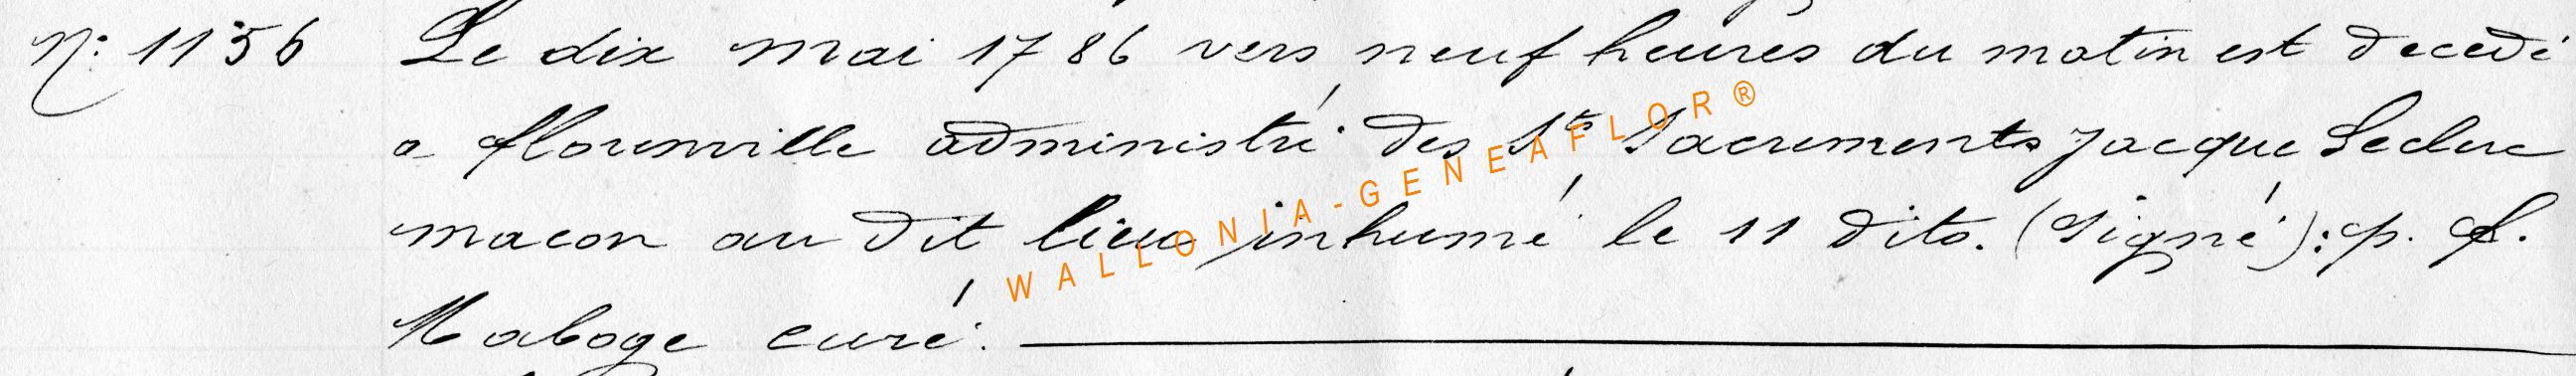 N: 1156 Le dix mai 1786 vers neuf heures du matin est decedé
a florenville administré des Sts Sacrements Jacque Leclerc
macon au dit lieu inhumé le 11 dito. (Signé): p. f.
Maboge curé.
WALLONIA-GENEAFLOR®